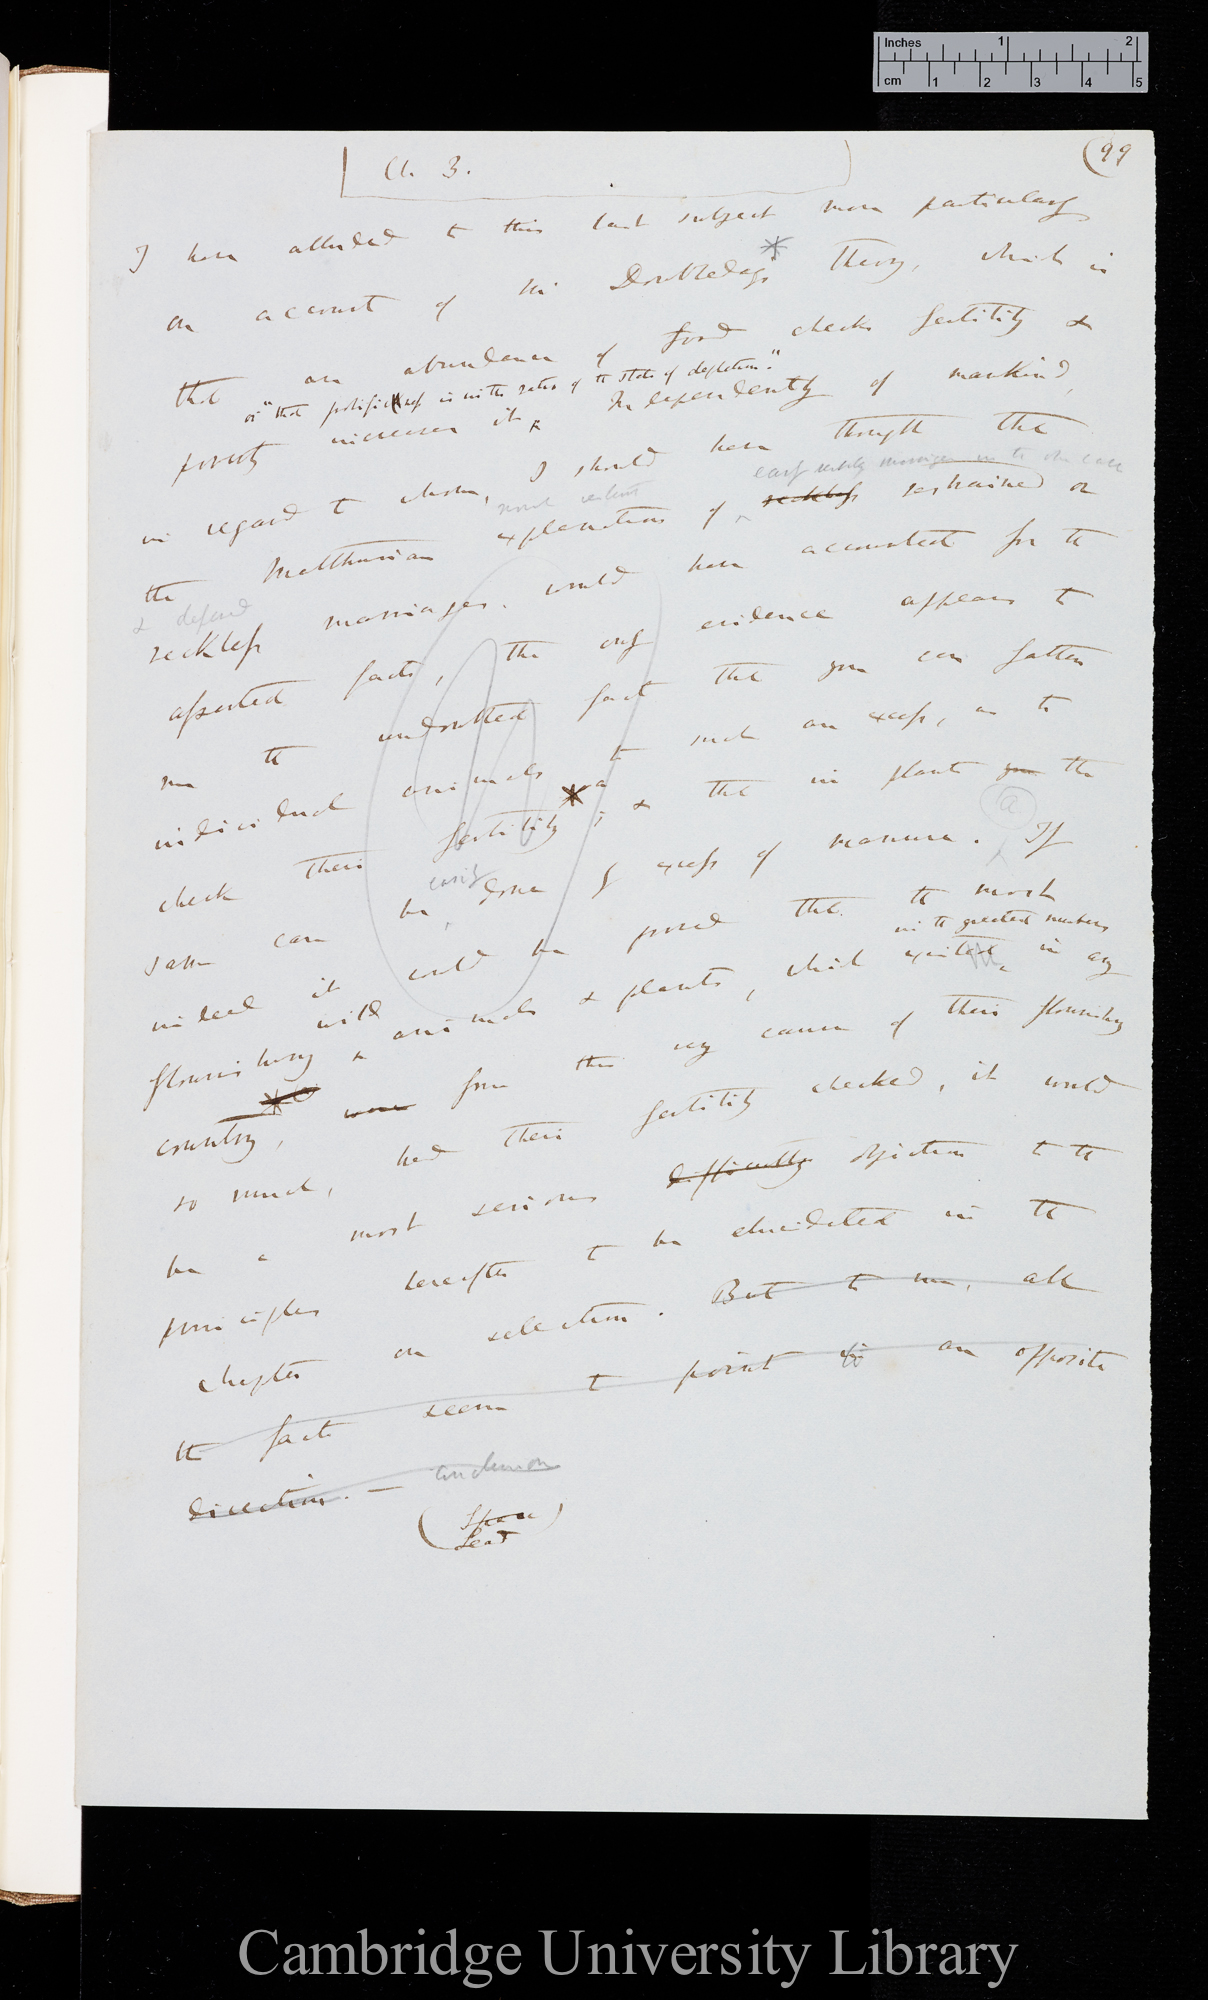 Inches 1 2
cm 1 2 3 4 5
Ch. 3.
(99
I have alluded to this last subject more particularly
on account of Mr Doubleday's* theory, which is
that an abundance of food checks fertility &
or "that prolificness is in the ratio of the state of depletion."
poverty increases it. Independently of mankind,
in regard to whom, I should have thought that
early
in the one case
the Malthusian explanation of reckless restrained or
& defered
reckless marriages, would have accounted for the
asserted facts, the only evidence appears to
me the undoubted fact that you can fatten
individual animals to such an excess, as to
check their fertility*; & that in plants you the
(a)
easily
same can be done by excess of manure. If
indeed it could be proved that the most
in the greatest numbers
flourishing wild animals & plants, which existed in any
country, were from this very cause of their flourishing
so much, had their fertility checked, it would
be a most serious difficulty objection to the
principles hereafter to be elucidated in the
chapter on selection. But to me, all
the facts seem to point to an opposite
direction. — conclusion
(Space)
Lead
Cambridge University Library